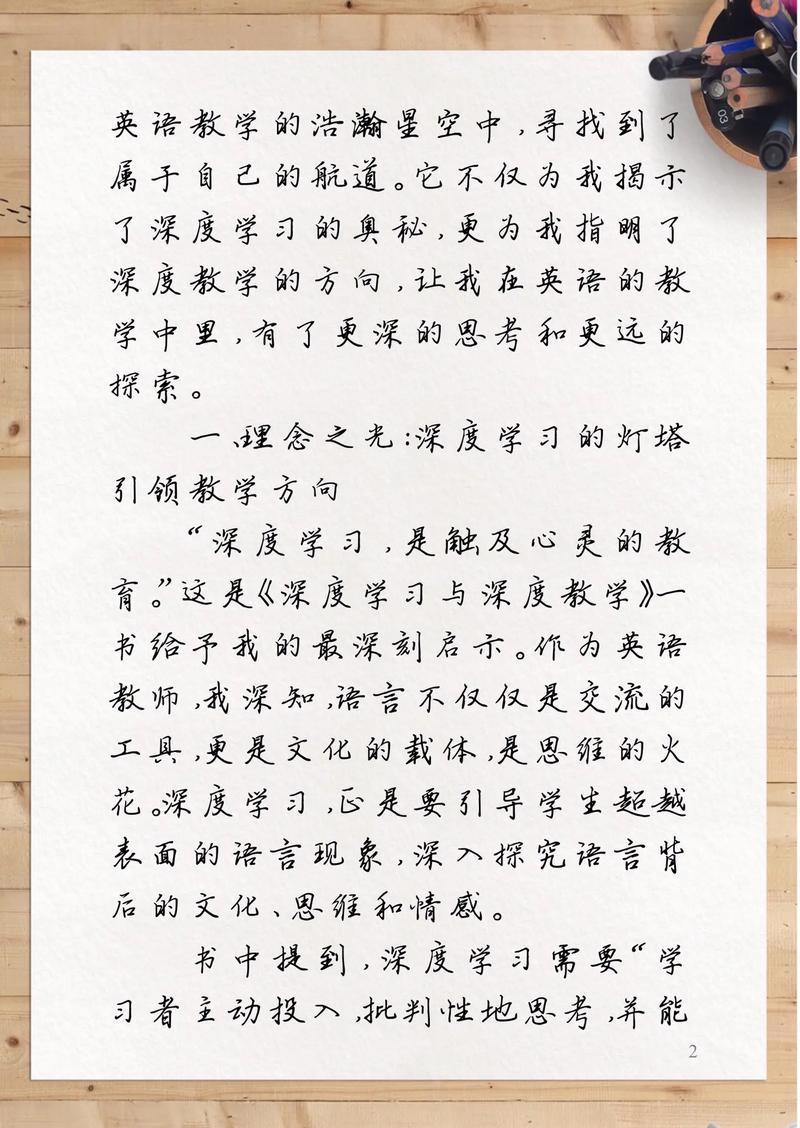 英语教学的浩瀚星空中,寻找到了
属于自己的航道。它不仅为我揭示
了深度学习的奥秘,更为我指明了
深度教学的方向,让我在英语的教
学中里,有了更深的思考和更远的
探索。
一、理念之光:深度学习的灯塔
引领教学方向
“深度学习,是触及心灵的教
育。”这是《深度学习与深度教学》一
书给予我的最深刻启示。作为英语
教师,我深知,语言不仅仅是交流的
工具,更是文化的载体,是思维的火
花。深度学习,正是要引导学生超越
表面的语言现象,深入探究语言背
后的文化、思维和情感。
书中提到,深度学习需要“学
习者主动投入,批判性地思考,并能
2